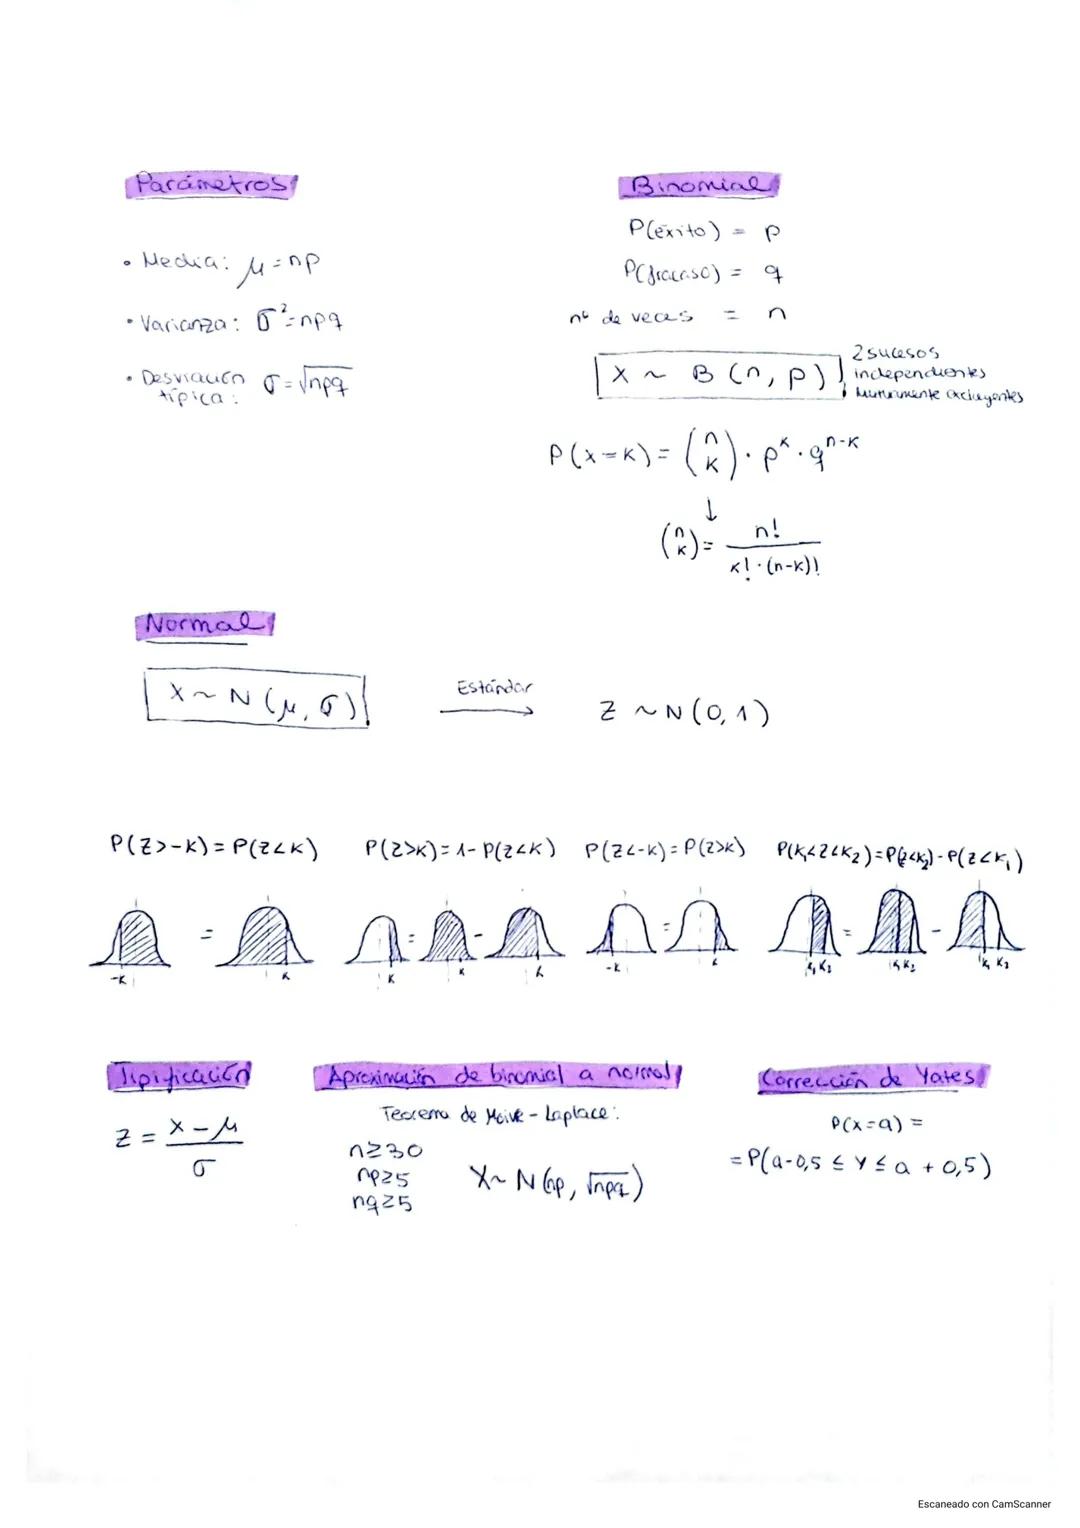 Parámetros
• Media: μ = np
• Varianza: σ² = npq
• Desviación típica: σ = √npq
Binomial
P(éxito) = p
P(fracaso) = q
nº de veces = n
X ~ B (n, p)
2 sucesos
independientes
mutuamente excluyentes
P(x=k) = (n k) · p^k · q^n-k
↓
(n k) = n! / k! · (n-k)!
Normal
X ~ N (μ, σ)
Estándar
Z ~ N (0, 1)
P(Z>-K) = P(Z<K)
P(Z>K) = 1 - P(Z<K)
P(Z<-K) = P(Z>K)
P(K₁<Z<K₂) = P(Z<K₂) - P(Z<K₁)
-K = K
K = K - K
-K = K
K₁ K₂ = K₁ K₂ - K₁ K₂
Tipificación
Z = X - μ / σ
Aproximación de binomial a normal
Teorema de Moivre - Laplace:
n≥30
np≥5
nq≥5
X ~ N (np, √npq)
Corrección de Yates
P(x=a) =
= P(a-0,5 ≤ Y ≤ a + 0,5)
Escaneado con CamScanner